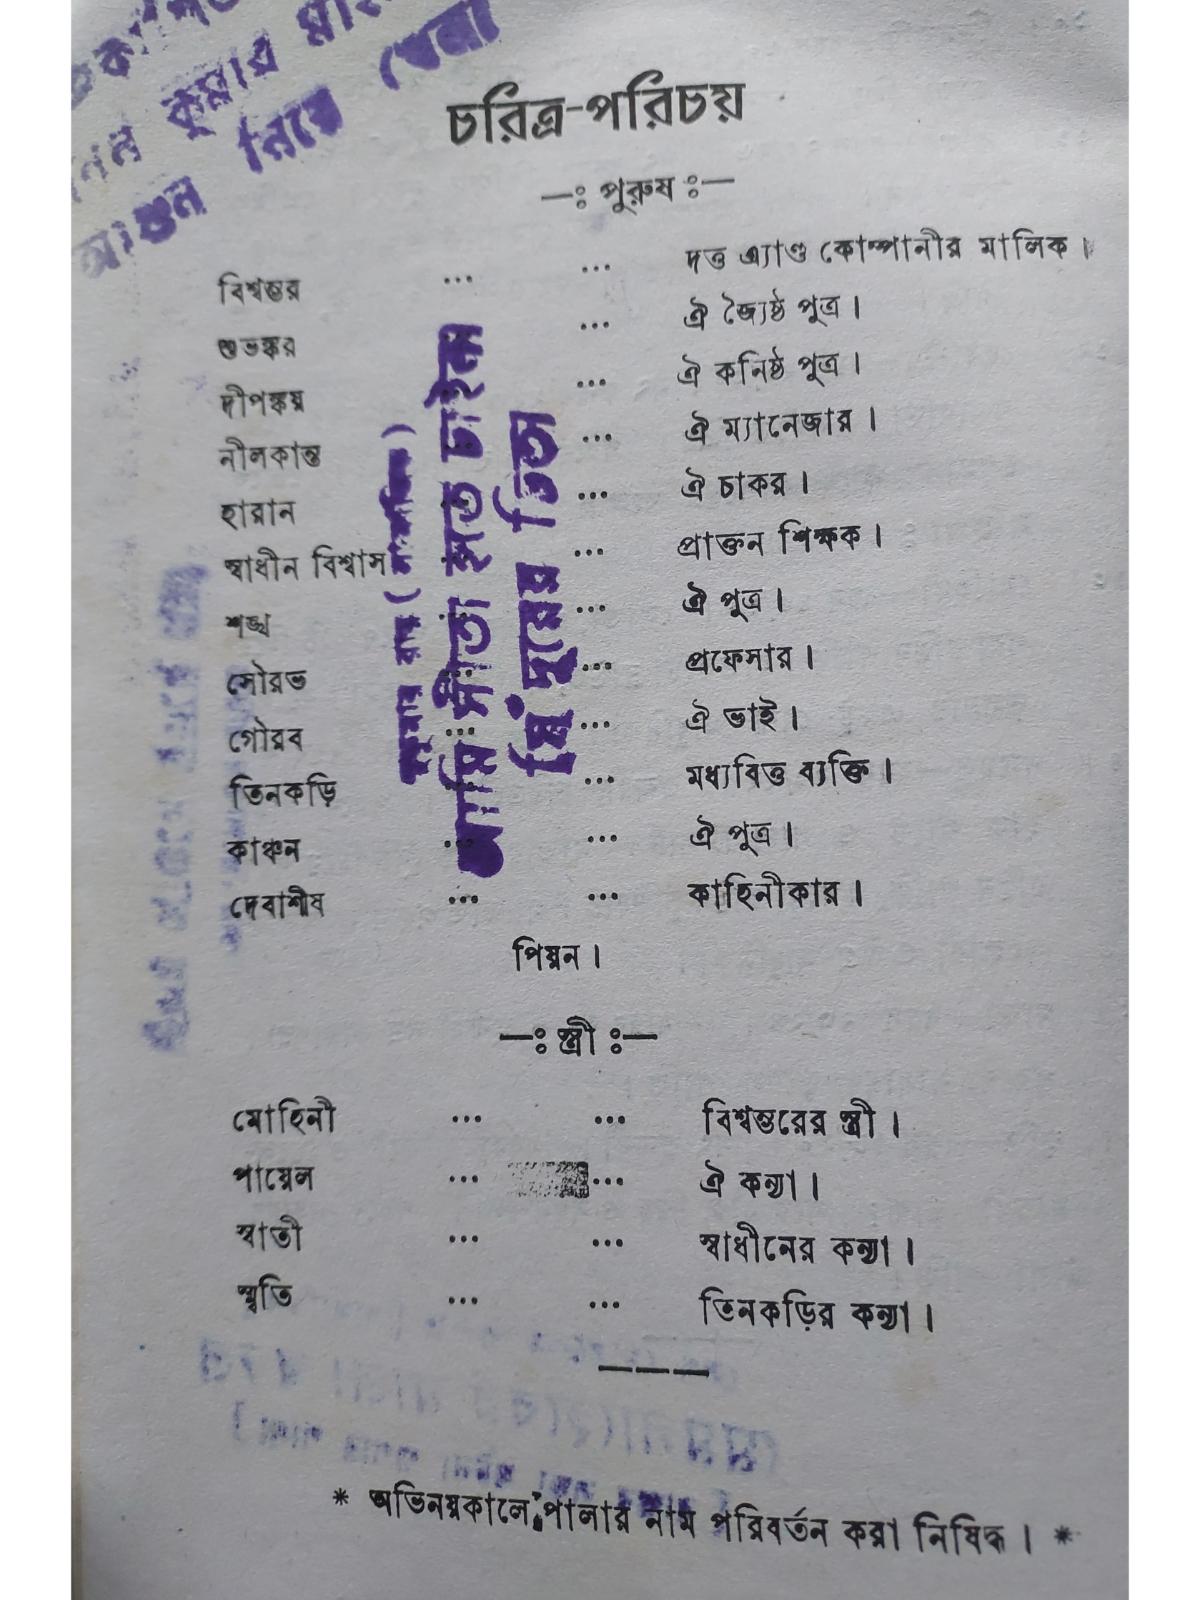 কুমার
নিয়ে খেলা
আগুন
চরিত্র-পরিচয়
—ঃ পুরুষ ঃ—
বিশ্বম্ভর ... ... দত্ত এ্যাণ্ড কোম্পানীর মালিক।
শুভঙ্কর ... ঐ জ্যৈষ্ঠ পুত্র।
দীপঙ্কর ... ঐ কনিষ্ঠ পুত্র।
নীলকান্ত ... ঐ ম্যানেজার।
হারান ... ঐ চাকর।
স্বাধীন বিশ্বাস ... প্রাক্তন শিক্ষক।
শঙ্খ ... ... ঐ পুত্র।
সৌরভ ... ... প্রফেসার।
গৌরব ... ... ঐ ভাই।
তিনকড়ি ... ... মধ্যবিত্ত ব্যক্তি।
কাঞ্চন ... ... ঐ পুত্র।
দেবাশীষ ... ... কাহিনীকার।
পিয়ন।
—ঃ স্ত্রী ঃ—
মোহিনী ... ... বিশ্বম্ভরের স্ত্রী।
পায়েল ... ... ঐ কন্যা।
স্বাতী ... ... স্বাধীনের কন্যা।
স্মৃতি ... ... তিনকড়ির কন্যা।
———
* অভিনয়কালে পালার নাম পরিবর্তন করা নিষিদ্ধ। *
আমি সীতা হতে চাইনা
সিঁদুরের চিতা